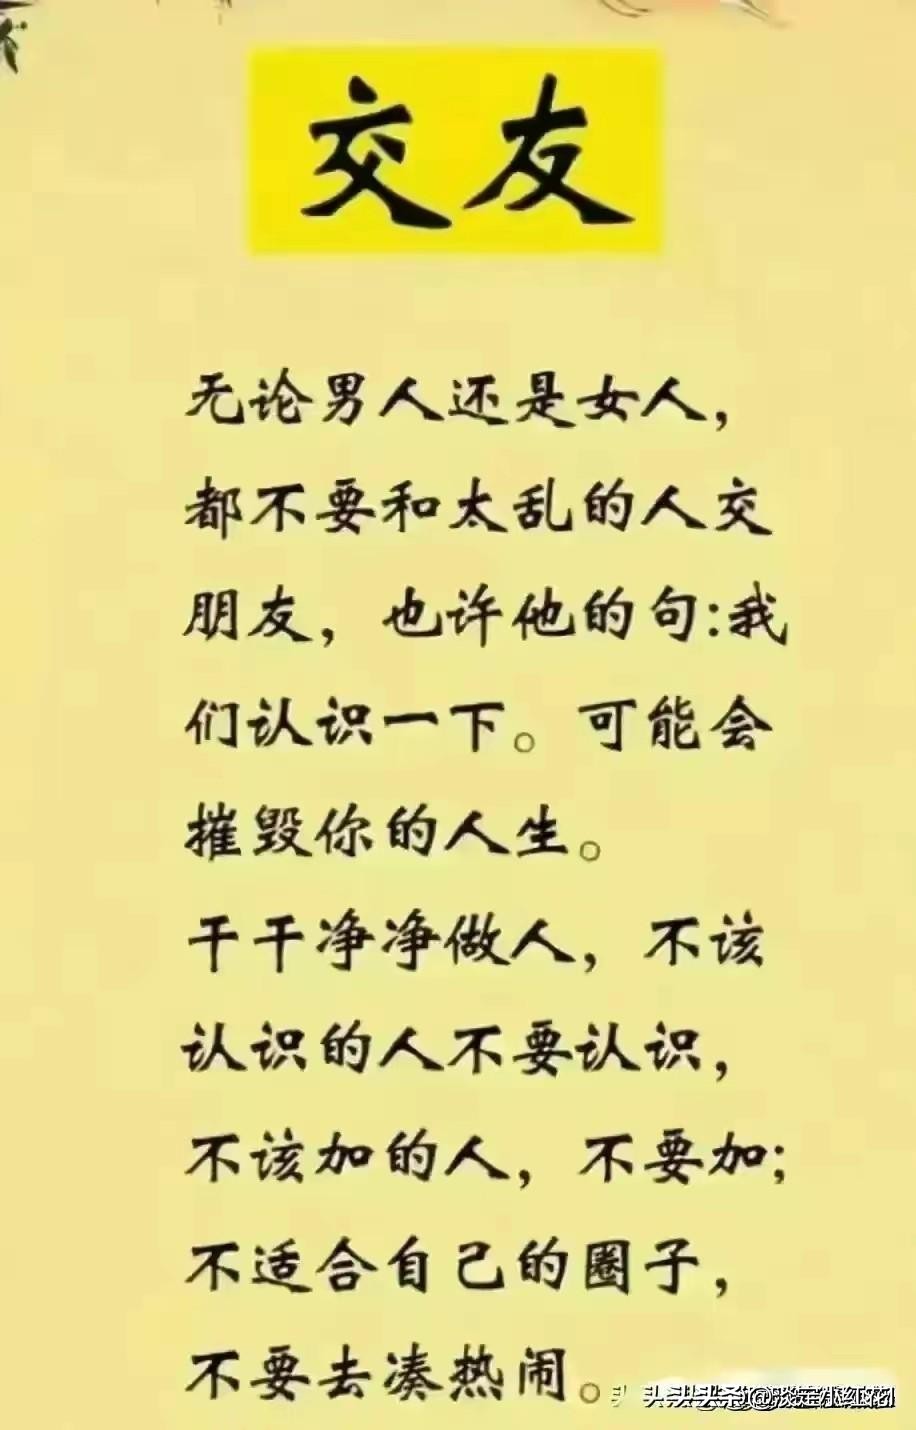 交友
无论男人还是女人，
都不要和太乱的人交
朋友，也许他的句:我
们认识一下。可能会
摧毁你的人生。
干干净净做人，不该
认识的人不要认识，
不该加的人，不要加;
不适合自己的圈子，
不要去凑热闹。